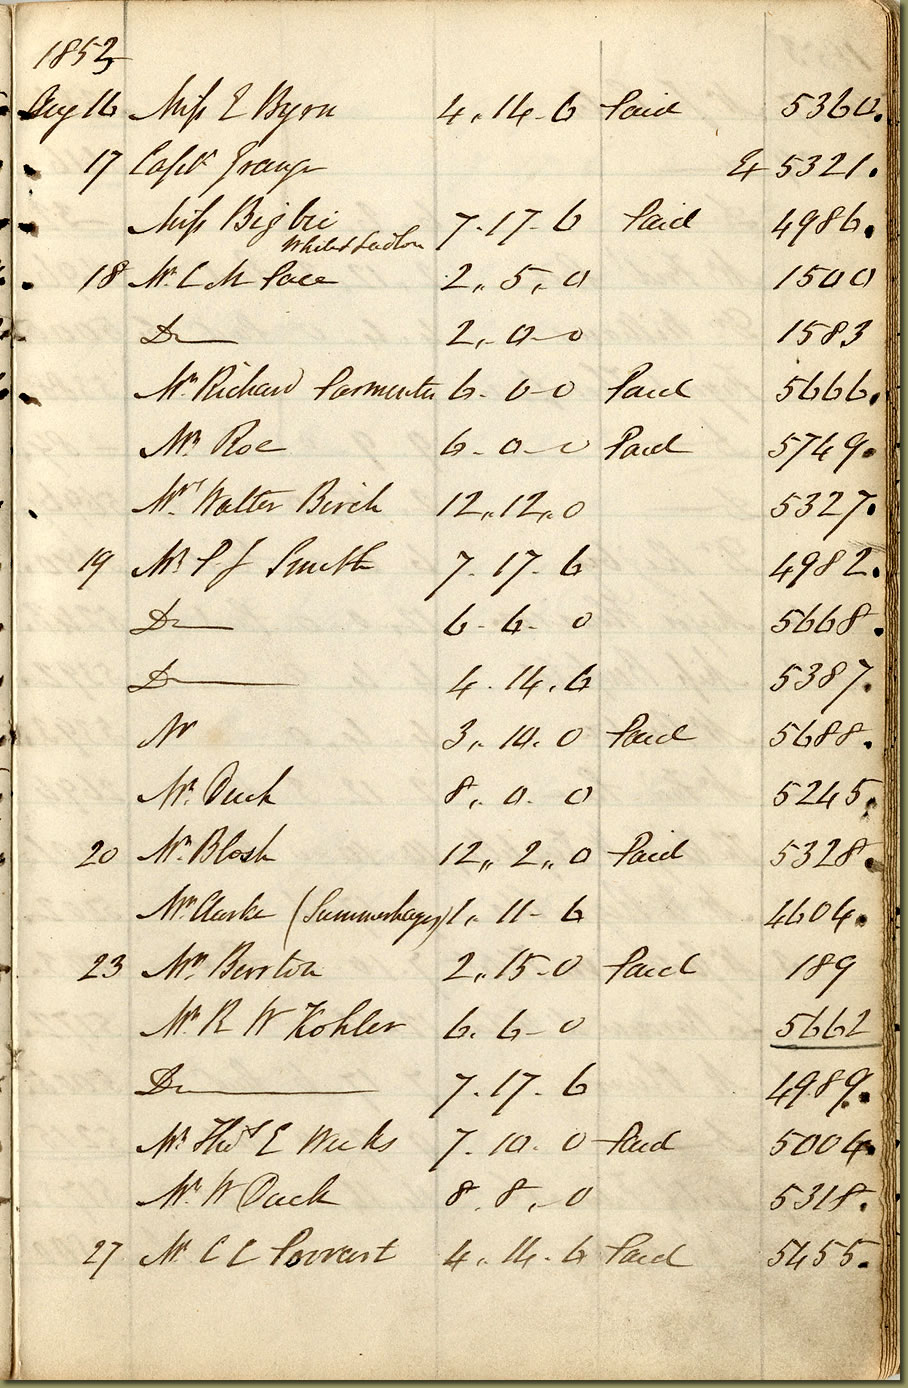 1852
Aug 16 Miss E Byrn 4 .. 14 - 6 Paid 5360.
17 Capt Grange 5321.
Miss Bigbie 7 - 17 - 6 Paid 4986.
18 Mr. C M Pace 2 .. 5 .. 0 1500
Do 2 .. 0 - 0 1583
Mr Richard Parmenter 6 - 0 - 0 Paid 5666.
Mr Roe 6 - 0 - 0 Paid 5749.
Mr Walter Birch 12 .. 12 .. 0 5327.
19 Mr P J Smith 7 - 17 - 6 4982.
Do 6 - 6 - 0 5668.
Do 4 . 14 . 6 5387.
Mr 3 .. 10 . 0 Paid 5688.
Mr. Duck 8 .. 0 . 0 5245.
20 Mr. Blosh 12 .. 2 .. 0 Paid 5328.
Mr Clarke (Summerhayes) 1 .. 11 - 6 4604.
23 Mr Burton 2 .. 15 - 0 Paid 189
Mr R W Kohler 6 . 6 - 0 5662
Do 7 - 17 - 6 4989.
Mr Thos E Weeks 7 - 10 . 0 Paid 5004.
Mr. W Duck 8 . 8 .. 0 5318.
27 Mr C C 4 .. 14 . 6 Paid 5455.